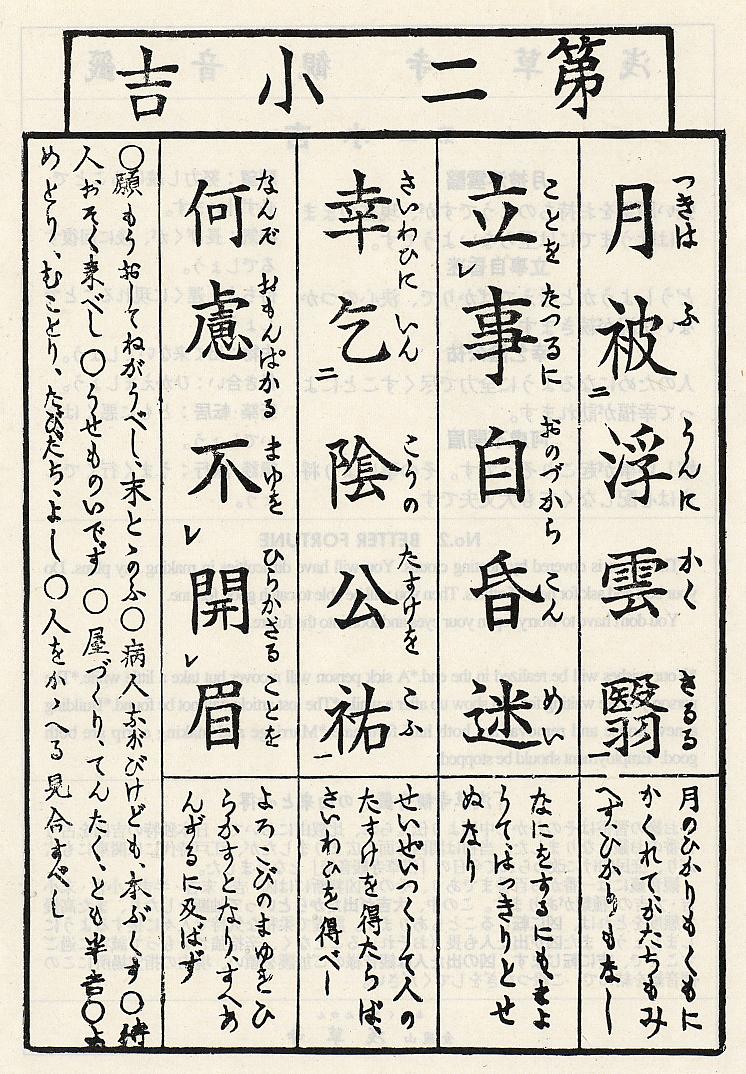 第二小吉
つきは ふ うんに かく さるる
月被二浮雲翳一
月のひかりもくもに
かくれてかたちもみ
へず、ひかりもなし
ことを たつるに おのづから こん めい
立レ事自昏迷
なにをするにもまよ
うて、はつきりとせ
ぬなり
さいわひに いん こうの たすけを こふ
幸乞二陰公祐一
せいぜいつくして人の
たすけを得たらば、
さいわひを得べし
なんぞ おもんぱかる まゆを ひらかざる ことを
何慮不レ開レ眉
よろこびのまゆをひ
らかずとな、すへあ
んずるに及ばず
○願もうおしてねがうべし末とゝのふ○病人ながびけども本ぶくす○待
人おそく来べし○うせものいでず○屋づくり、てんたく、とも半吉○よ
めとり、むことり、たびだち、よし○人をかゝへる見合すべし